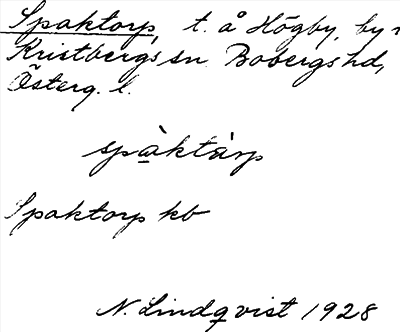 Spaktorp, t. å Högby, by i
Kristbergs sn. Bobergs hd,
Österg. l.
spàktàrp
Spaktorp kb
N. Lindqvist 1928